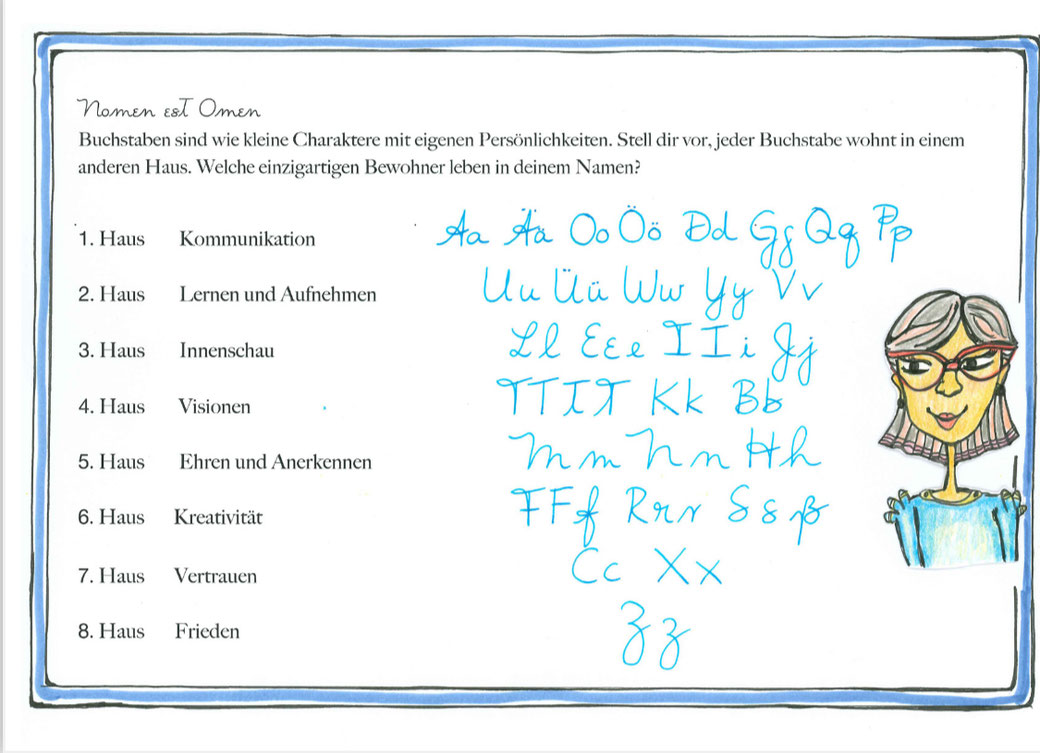 Nomen est Omen
Buchstaben sind wie kleine Charaktere mit eigenen Persönlichkeiten. Stell dir vor, jeder Buchstabe wohnt in einem
anderen Haus. Welche einzigartigen Bewohner leben in deinem Namen?
1. Haus Kommunikation Aa Ää Oo Öö Dd Gg Qq Pp
2. Haus Lernen und Aufnehmen Uu Üü Ww Yy Vv
3. Haus Innenschau Ll Eεe I I i Jj
4. Haus Visionen TTIT Kk Bb
5. Haus Ehren und Anerkennen Mm Nn Hh
6. Haus Kreativität FFf Rrr Ssß
7. Haus Vertrauen Cc Xx
8. Haus Frieden Zz